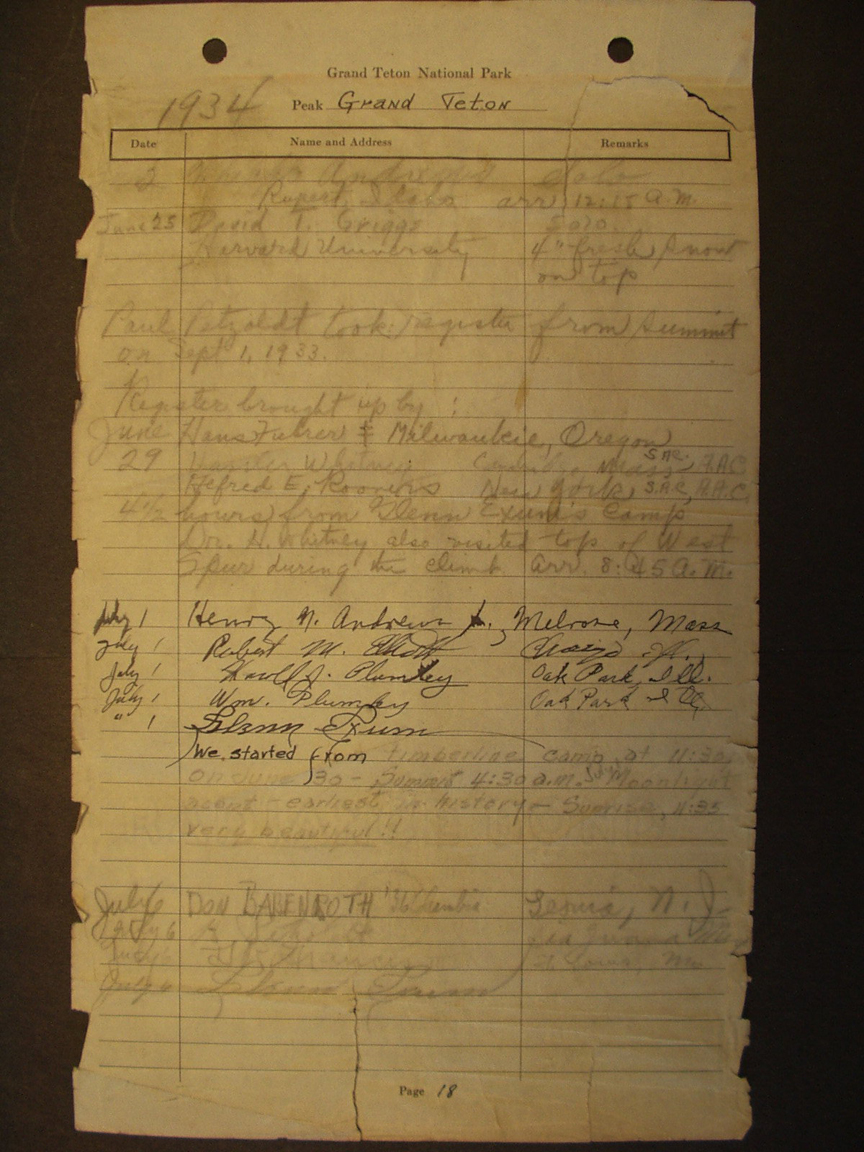 Grand Teton National Park
1934 Peak Grand Teton
Date Name and Address Remarks
2 Solo
Rupert, Idaho arr 12:15 A.M.
June 25 David T. Griggs Solo.
Harvard University 4" fresh snow
on top
Paul Petzoldt took register from summit
on Sept 1, 1933.
Register brought up by :
June Hans Fuhrer Milwaukie, Oregon
29 Whitney Mass. A.A.C.
Alfred E. Roovers New York S.A.C., A.A.C.
4 1/2 hours from Glenn Exum's Camp
Dr. H. Whitney also visited top of West
Spur during the climb. Arr. 8:45 A.M.
July 1 Henry N. Andrews Jr., Melrose, Mass
July 1 Robert M. Elliott
July 1 J. Plumley Oak Park, Ill.
July 1 Wm. Plumley Oak Park Ill.
" 1 Glenn Exum
We started from timberline camp at 11:30
on June 30 - Summit 4:30 a.m. July Moonlight
ascent - earliest in history - Sunrise, 4:35
very beautiful!!
July 6 DON BAHENROTH '36 Columbia N. J.
July 6
July 6 St Louis, Mo.
July 6 Glenn Exum
Page 18